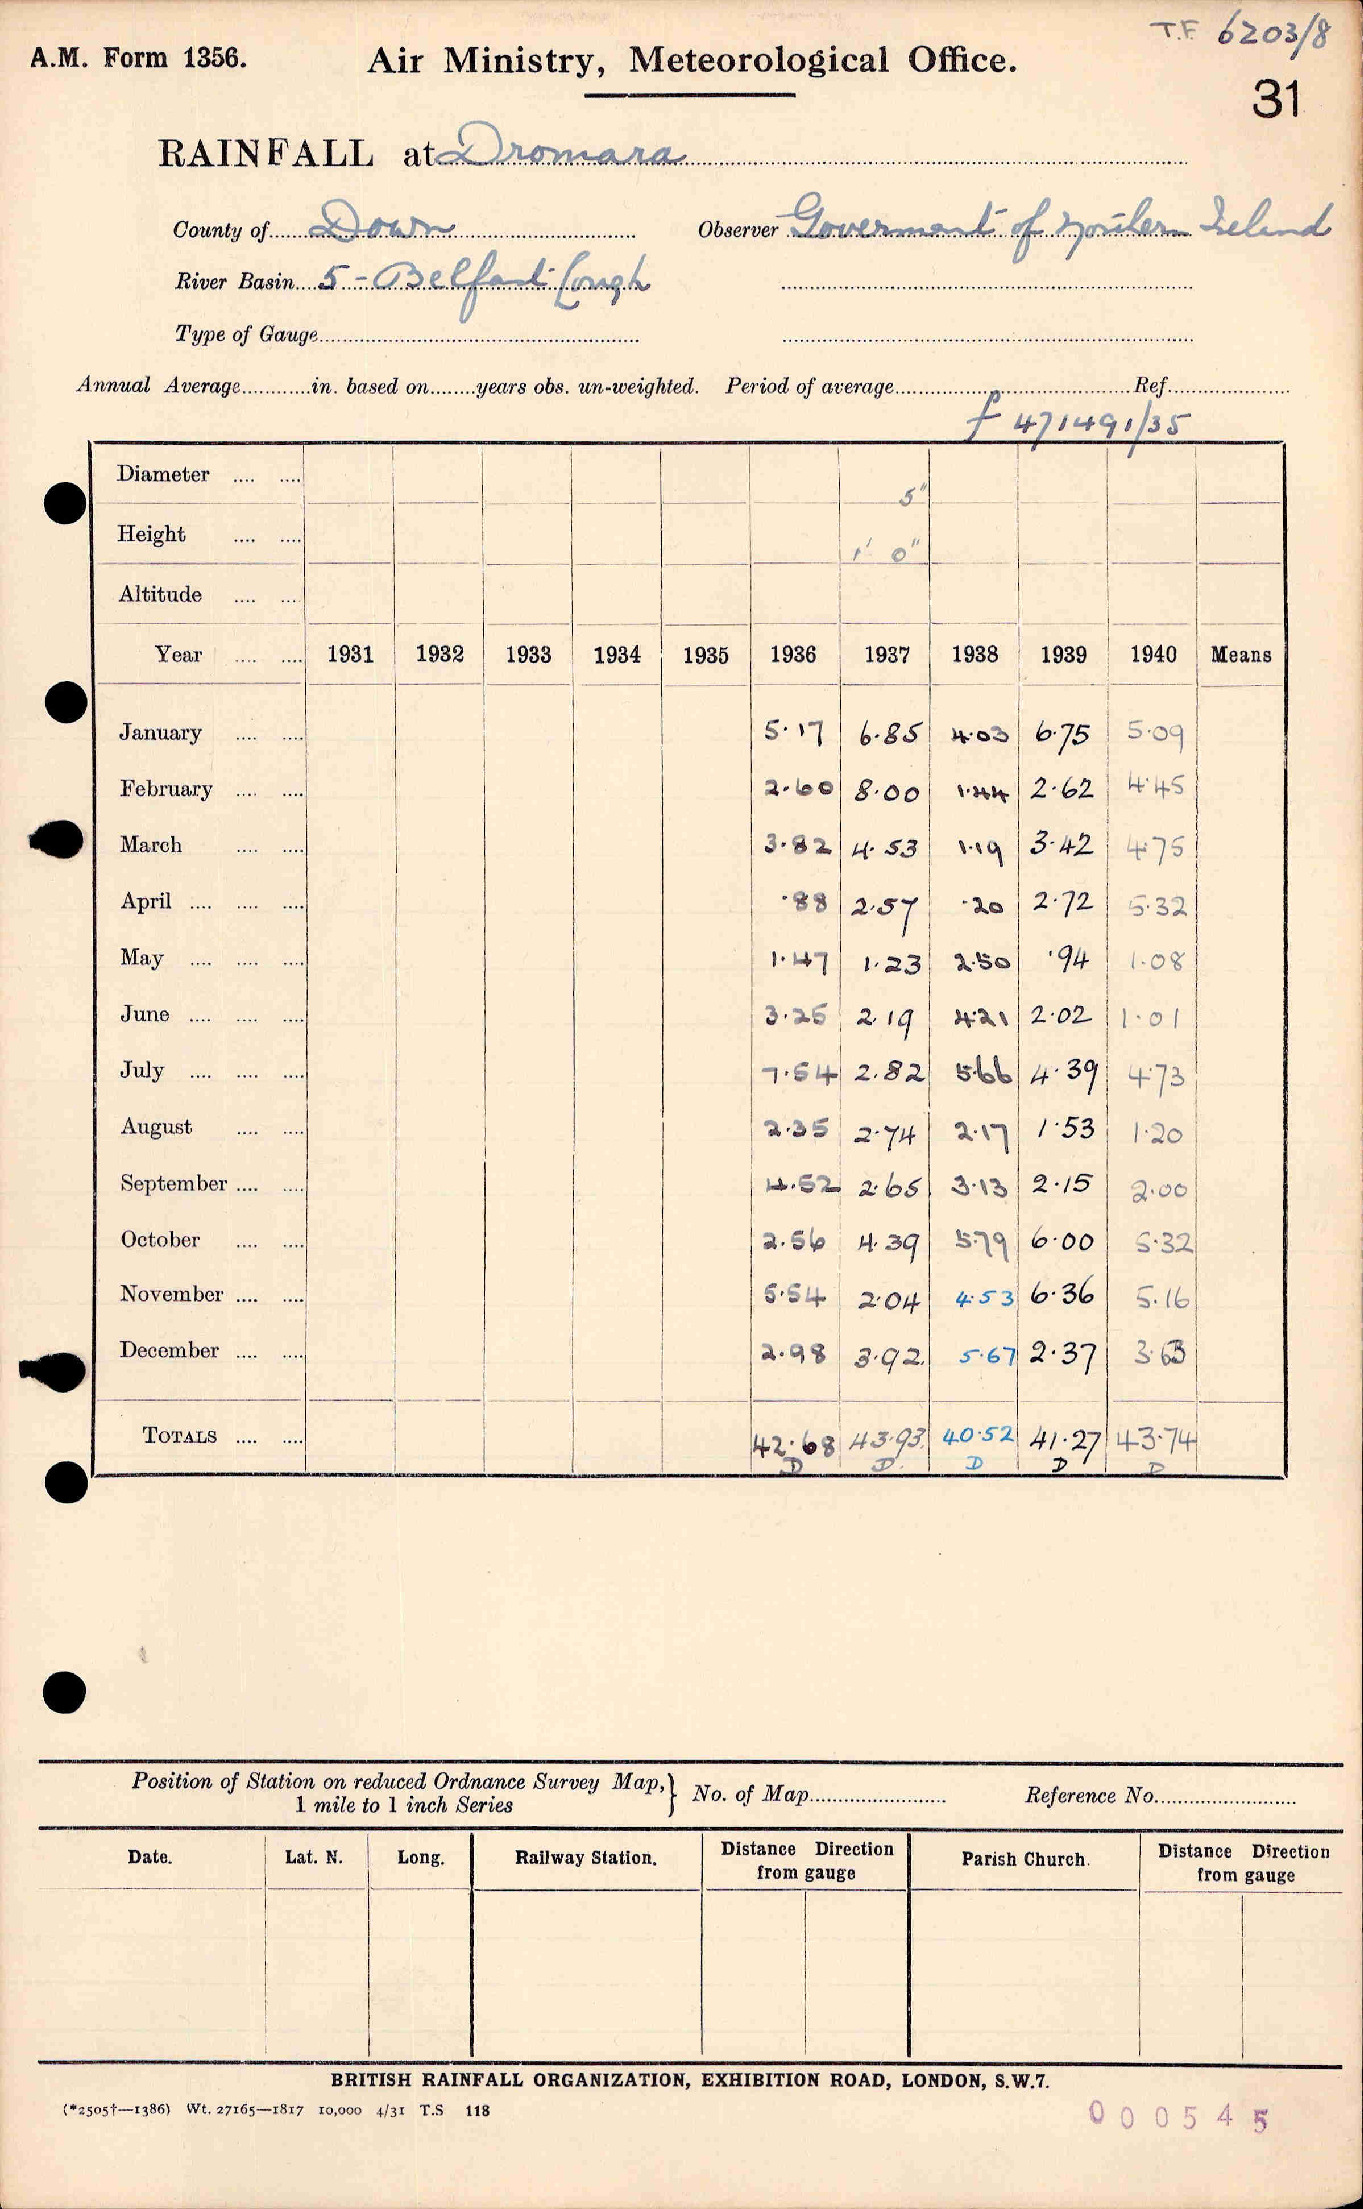 T.F. 6203/8
A.M. Form 1356. Air Ministry, Meteorological Office.
31
RAINFALL at Dromara
County of Down Observer Government of Northern Ireland
River Basin 5 - Belfast Lough
Type of Gauge
Annual Average in. based on years obs. un-weighted. Period of average Ref.
f 471491/35
Diameter 5"
Height 1' 0"
Altitude
Year 1931 1932 1933 1934 1935 1936 1937 1938 1939 1940 Means
January 5.17 6.85 4.03 6.75 5.09
February 2.60 8.00 1.44 2.62 4.45
March 3.82 4.53 1.19 3.42 4.75
April .88 2.57 .20 2.72 5.32
May 1.47 1.23 2.50 .94 1.08
June 3.25 2.19 4.21 2.02 1.01
July 7.54 2.82 5.66 4.39 4.73
August 2.35 2.74 2.17 1.53 1.20
September 4.52 2.65 3.13 2.15 2.00
October 2.56 4.39 5.79 6.00 5.32
November 5.54 2.04 4.53 6.36 5.16
December 2.98 3.92 5.67 2.37 3.63
TOTALS 42.68 43.93 40.52 41.27 43.74
D D D D D
Position of Station on reduced Ordnance Survey Map, } No. of Map Reference No.
1 mile to 1 inch Series
Date. Lat. N. Long. Railway Station. Distance Direction from gauge Parish Church. Distance Direction from gauge
BRITISH RAINFALL ORGANIZATION, EXHIBITION ROAD, LONDON, S.W.7.
(*2505†—1386) Wt. 27165—1817 10,000 4/31 T.S 118
000545